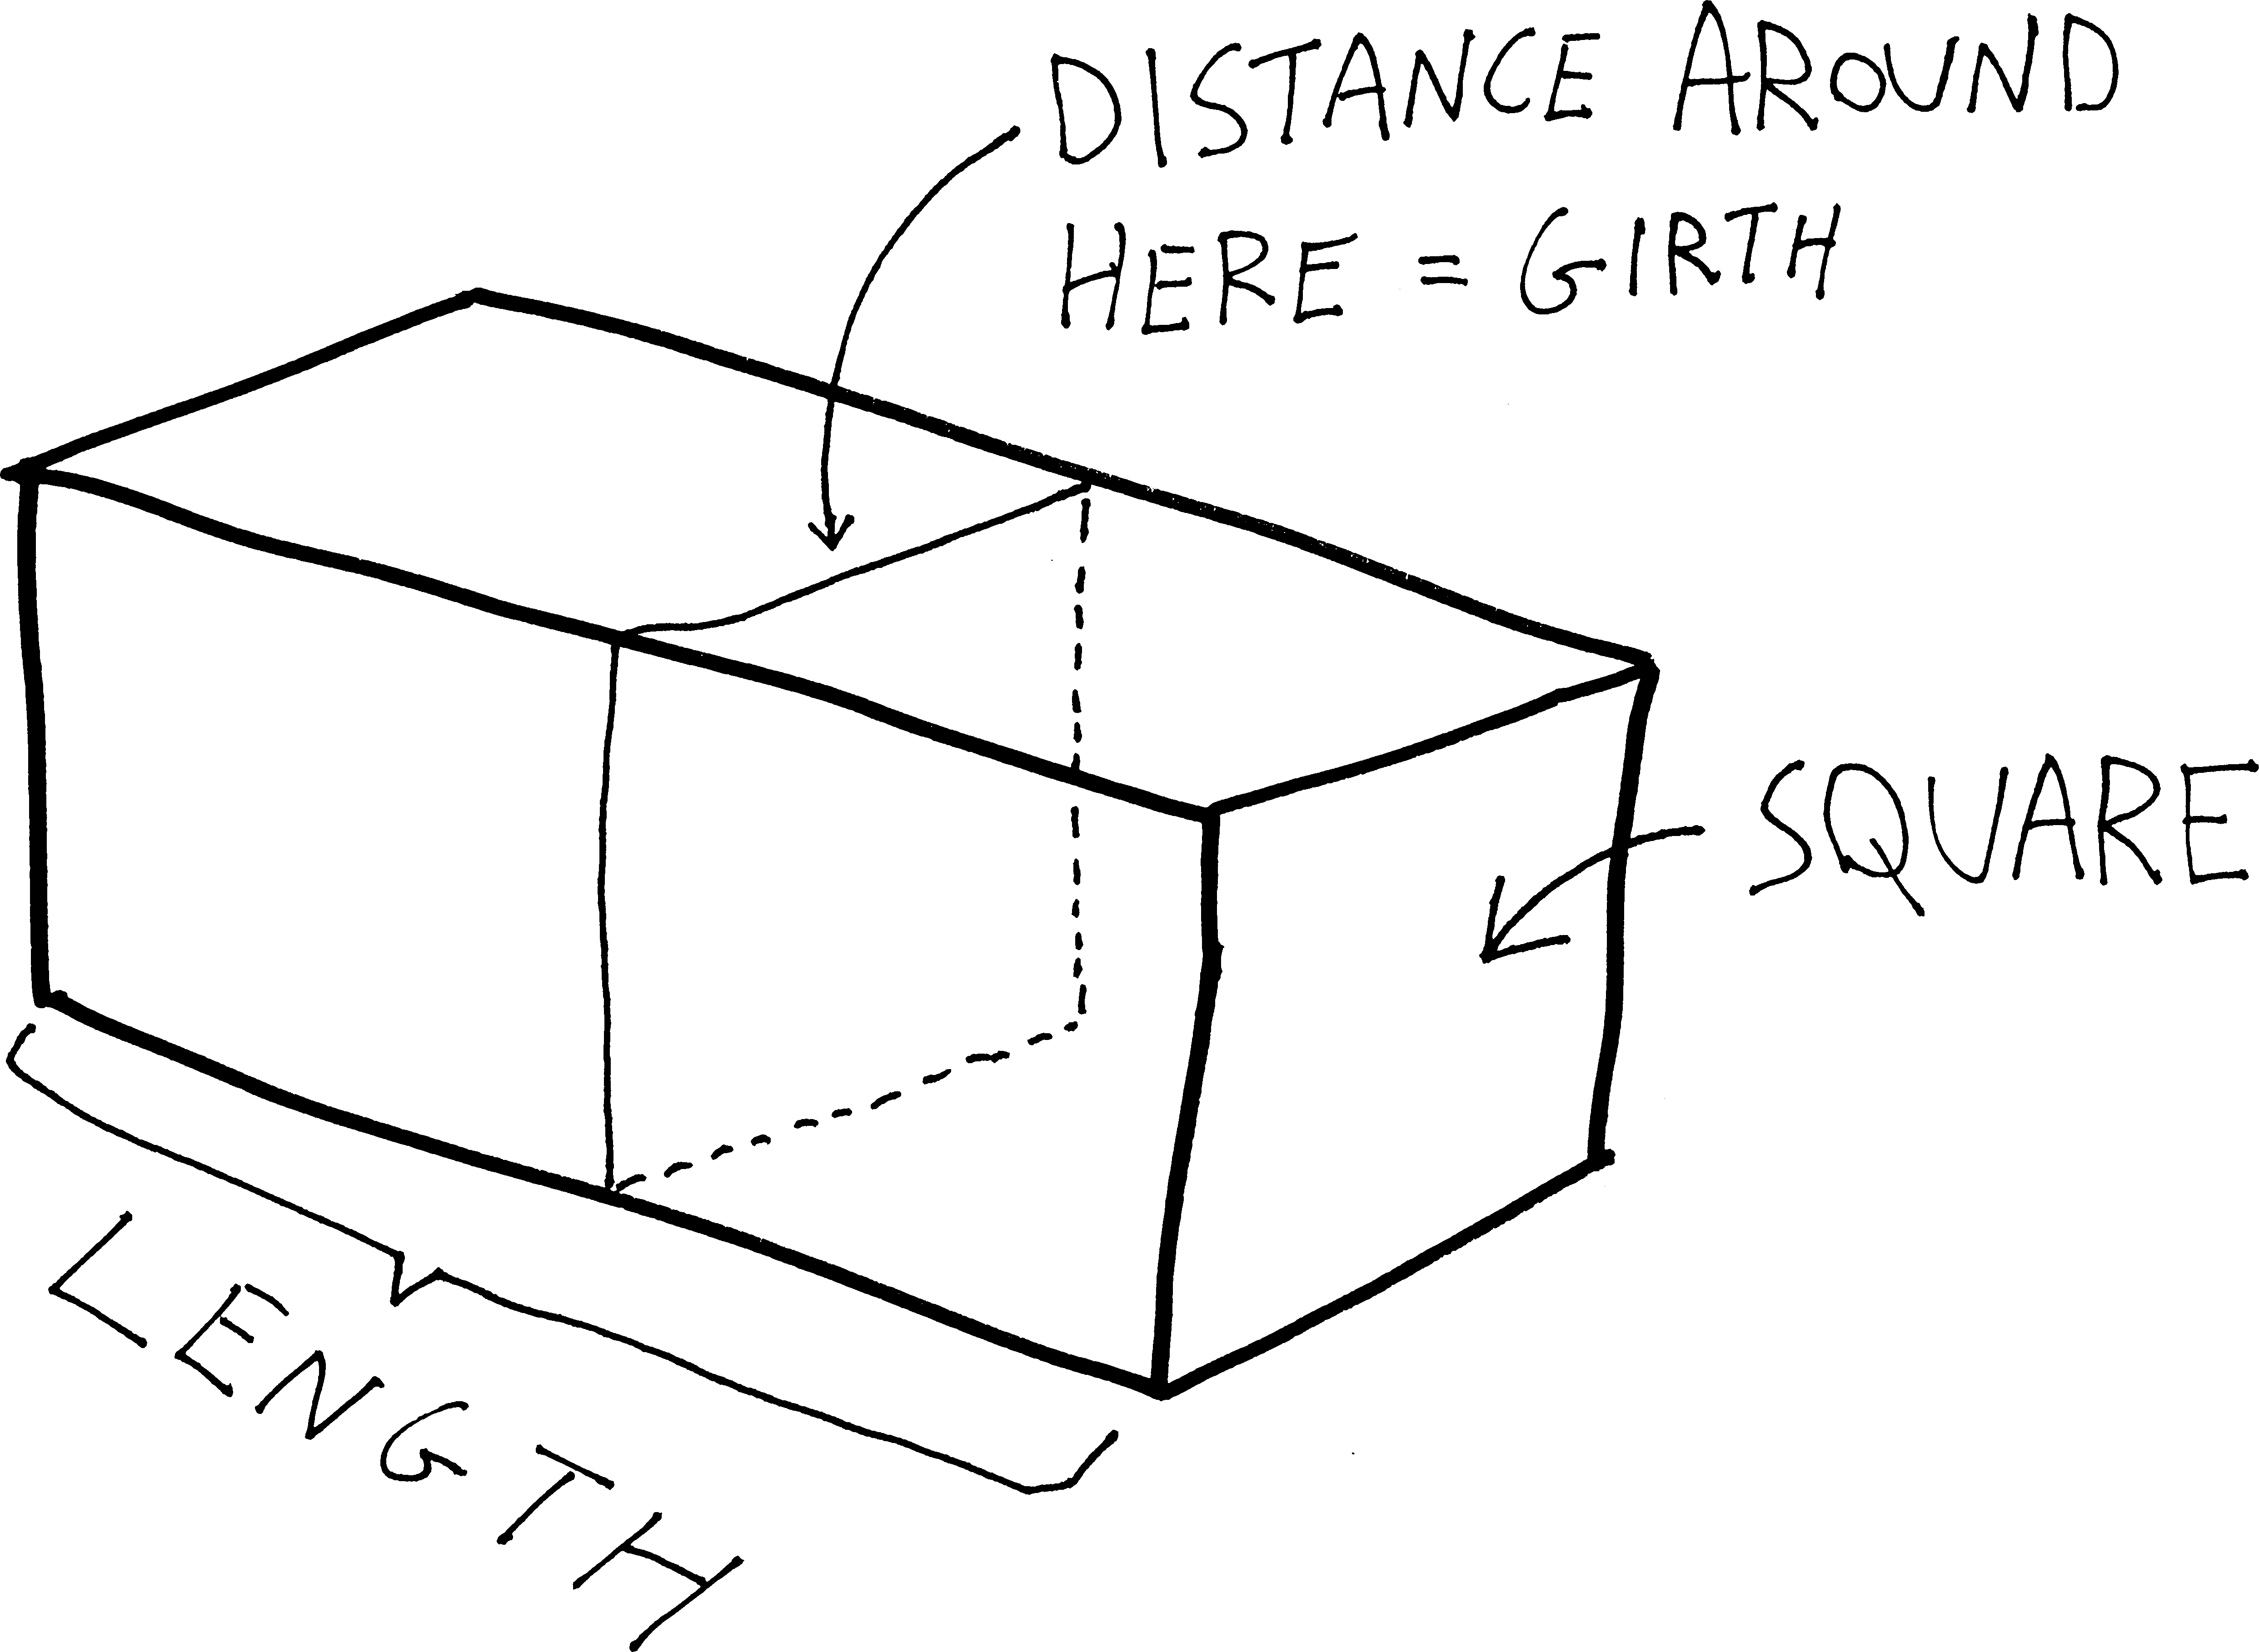 DISTANCE AROUND
HERE = GIRTH
SQUARE
LENGTH